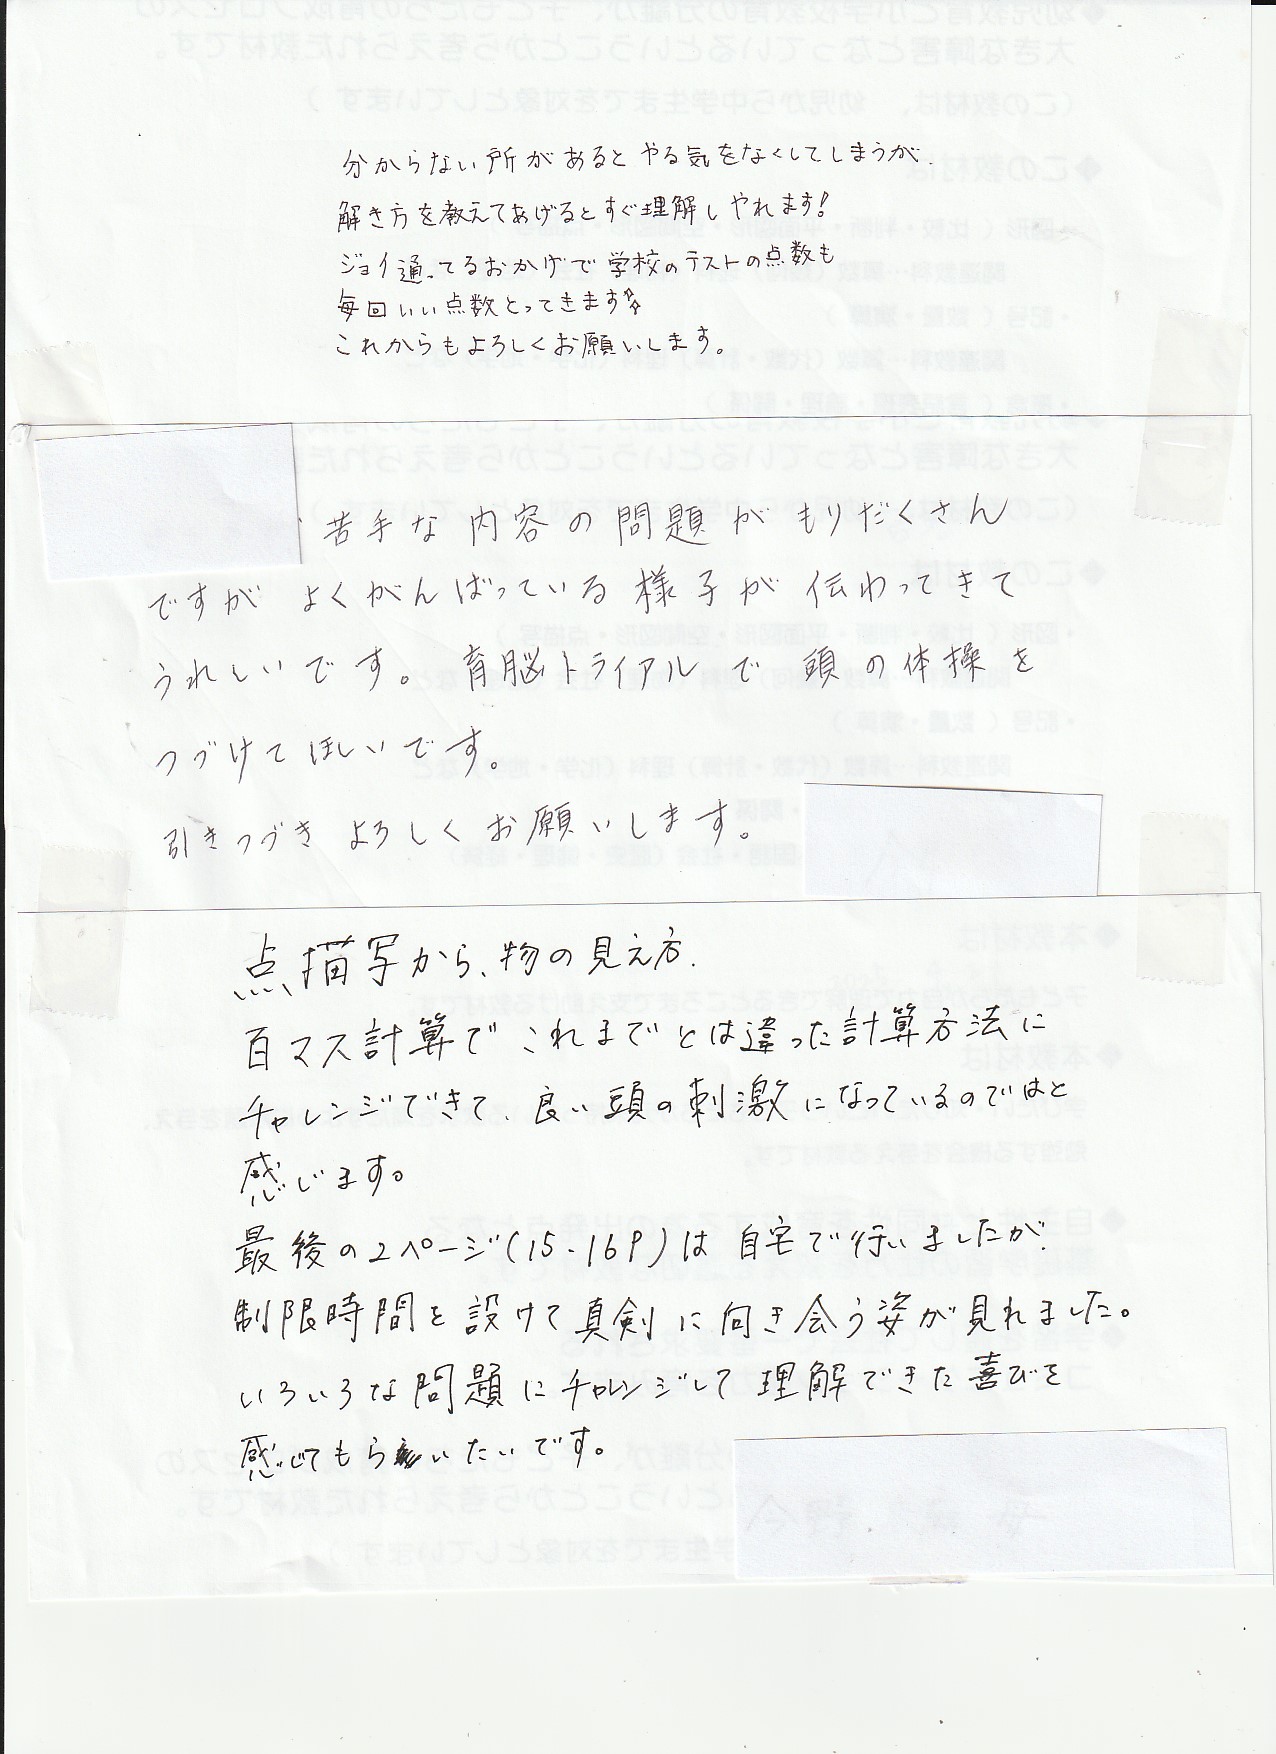 分からない所があるとやる気をなくしてしまうが、
解き方を教えてあげるとすぐ理解しやれます!
ジョイ通ってるおかげで学校のテストの点数も
毎回いい点数とってきます☆
これからもよろしくお願いします。
苦手な内容の問題がもりだくさん
ですがよくがんばっている様子が伝わってきて
うれしいです。育脳トライアルで頭の体操を
つづけてほしいです。
引きつづきよろしくお願いします。
点描写から、物の見え方、
百マス計算でこれまでとは違った計算方法に
チャレンジできて、良い頭の刺激になっているのではと
感じます。
最後の2ページ(15-16P)は自宅で行いましたが、
制限時間を設けて真剣に向き会う姿が見れました。
いろいろな問題にチャレンジして理解できた喜びを
感じてもらいたいです。